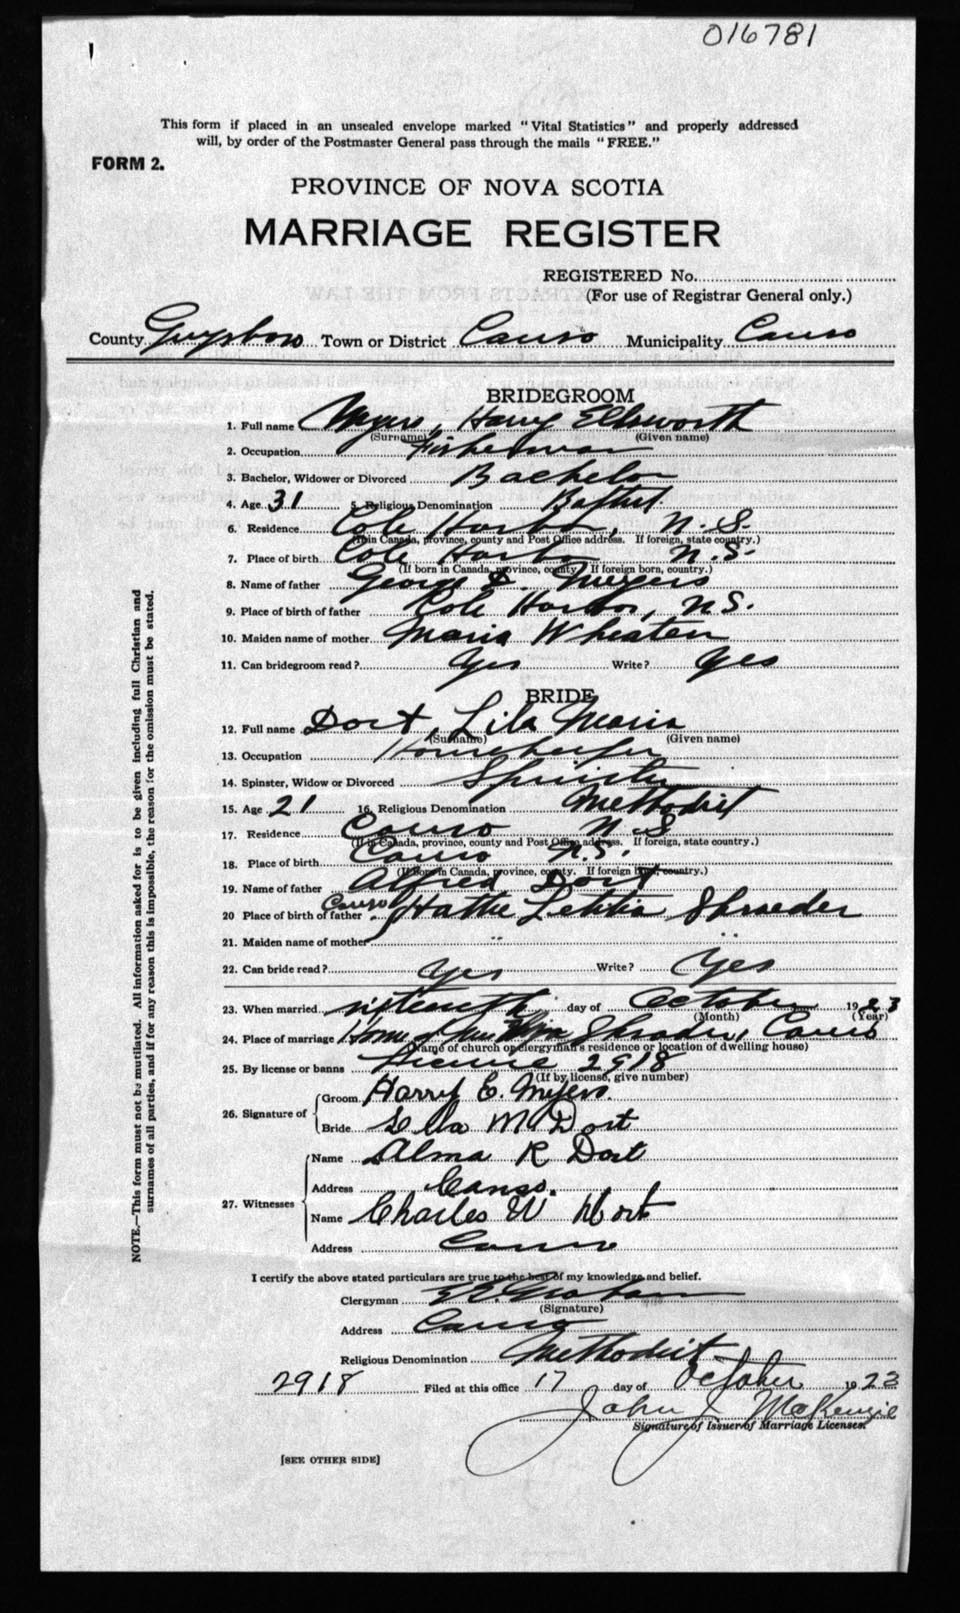 016781
This form if placed in an unsealed envelope marked "Vital Statistics" and properly addressed
will, by order of the Postmaster General pass through the mails "FREE."
FORM 2.
PROVINCE OF NOVA SCOTIA
MARRIAGE REGISTER
REGISTERED No.
(For use of Registrar General only.)
County Guysboro Town or District Canso Municipality Canso
BRIDEGROOM
1. Full name Myers, Harry Ellsworth
(Surname) (Given name)
2. Occupation Fisherman
3. Bachelor, Widower or Divorced Bachelor
4. Age 31 5. Religious Denomination Baptist
6. Residence Cole Harbor, N.S.
(If in Canada, province, county and Post Office address. If foreign, state country.)
7. Place of birth Cole Harbor N.S.
(If born in Canada, province, county. If foreign born, country.)
8. Name of father George D. Myers
9. Place of birth of father Cole Harbor, N.S.
10. Maiden name of mother Maria Wheaten
11. Can bridegroom read? Yes Write? Yes
BRIDE
12. Full name Dort, Lila Maria
(Surname) (Given name)
13. Occupation Housekeeper
14. Spinster, Widow or Divorced Spinster
15. Age 21 16. Religious Denomination Methodist
17. Residence Canso N.S
(If in Canada, province, county and Post Office address. If foreign, state country.)
18. Place of birth Canso N.S.
(If born in Canada, province, county. If foreign born, country.)
19. Name of father Alfred Dort
20 Place of birth of father Canso Hattie Letitia Shraeder
21. Maiden name of mother
22. Can bride read? Yes Write? Yes
23. When married sixteenth day of October 1923
(Month) (Year)
24. Place of marriage Home of Mrs Shrader, Canso
(Name of church or clergyman's residence or location of dwelling house)
25. By license or banns License 2918
(If by license, give number)
26. Signature of Groom Harry E. Myers.
Bride Lila M Dort
27. Witnesses Name Alma R Dort
Address Canso.
Name Charles W Dort
Address Canso
I certify the above stated particulars are true to the best of my knowledge and belief.
Clergyman Graham
(Signature)
Address Canso
Religious Denomination Methodist
2918 Filed at this office 17 day of October 1923
John J McKenzie
Signature of Issuer of Marriage Licenses.
[SEE OTHER SIDE]
NOTE.—This form must not be mutilated. All information asked for is to be given including full Christian and
surnames of all parties, and if for any reason this is impossible, the reason for the omission must be stated.